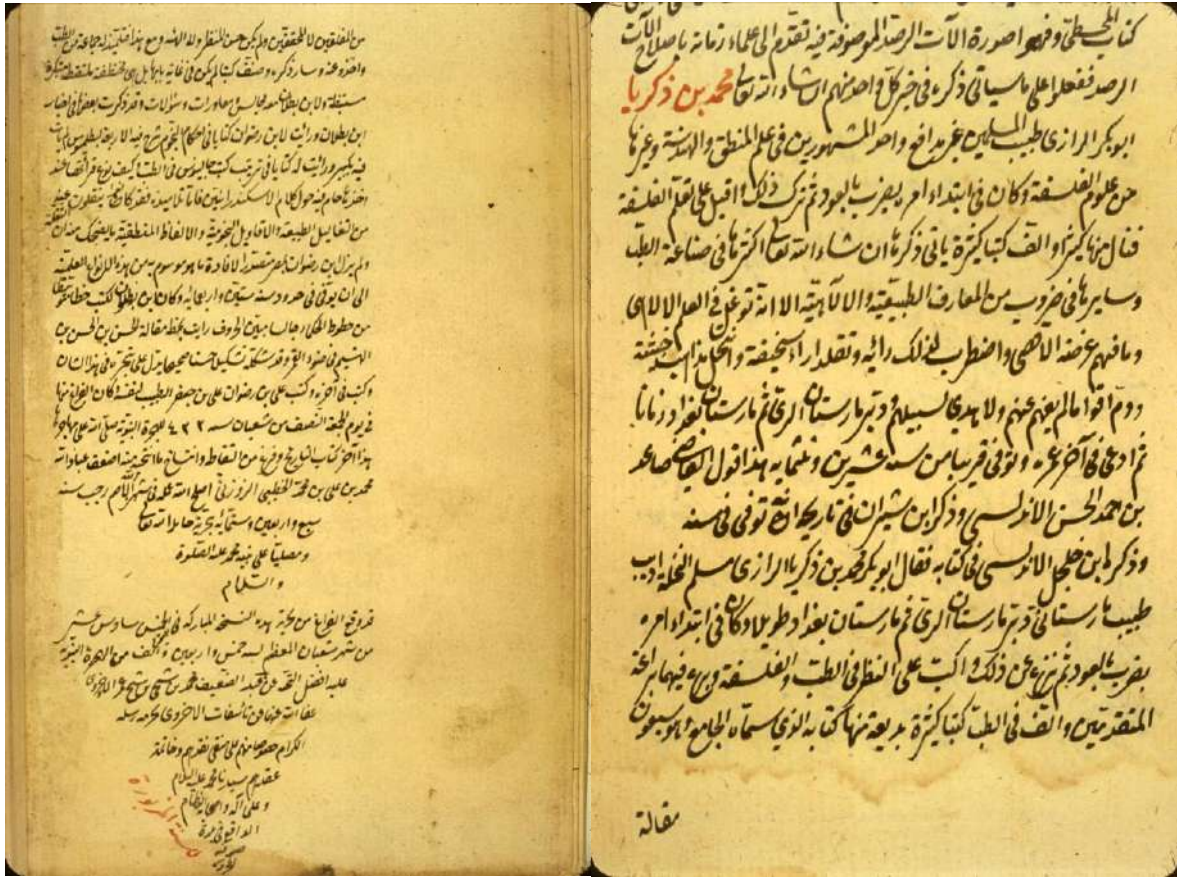 كتاب المجسطى وفهموا صورة الآت الرصد الموصوفة فيه تقدم الى علماء زمانه باصلاح الآت
الرصد ففعلوا على ما سياتى ذكره فى خبر كل واحد منهم ان شاء الله تعالى محمد بن ذكريا
ابو بكر الرازى طبيب المسلمين غير مدافع واحد المشهورين فى علم المنطق والهندسة وغيرها
من علوم الفلسفة وكان فى ابتداء امره يضرب بالعود ثم ترك ذلك واقبل على تعلم الفلسفة
فنال منها كثيرا والف كتبا كثيرة ياتى ذكرها ان شاء الله تعالى اكثرها فى صناعة الطب
وسايرها فى ضروب من المعارف الطبيعية والالاهية الا انه توغل فى العلم الالاهى
وما فهم غرضه الاقصى واضطرب لذلك رائه وتقلد اراء سخيفة وانتحل مذاهب خبيثة
وذم اقواما لم يفهم عنهم ولا هدى لسبيلهم ودبر مارستان الرى ثم مارستان بغداد زمانا
ثم فى آخر عمره وتوفى قريبا من سنه عشرين وثلثمايه هذا قول القاضى صاعد
بن احمد الحسن الاندلسى وذكر ابن شيران فى تاريخه انه توفى فى سنه
وذكر ابن جلجل الاندلسى فى كتابه فقال ابو بكر محمد بن ذكريا الرازى مسلم النحلة اديب
طبيب مارستانى دبر مارستان الرى ثم مارستان بغداد طويلا وكان فى ابتداء امره
يضرب بالعود ثم نزع عن ذلك واكب على النظر فى الطب والفلسفة وبرع فيهما براعة
المتقدمين والف فى الطب كتبا كثيرة بديعة منها كتابه الذى سماه الجامع وهو سبعون
مقالة
من المتفلسفين لا المحققين ولم يكن حسن المنظر ولا الهيئة ومع هذا فتلمذ له جماعة من الطلبة
واخذوا عنه وسار ذكره وصنف كتبا لم يكن فى غاية
ولابن بطلان معه مجالس ومحاورات وسؤالات وقد ذكرت بعضها فى اخبار
ابن بطلان ورايت لابن رضوان كتابا فى احكام النجوم شرح فيه الاربعة لبطلميوس لم يات
فيه بكبير ورايت له كتابا فى ترتيب كتب جالينوس فى الطب كيف يوخذ قرأتها عند
اخذها حام فيه حول كلام الاسكندرانيين فاما تلاميذه فقد كانوا ينقلون عنه
من التعاليل الطبيعة والاقاويل النجومية والالفاظ المنطقية ما يضحك منه ان
ولم يزل ابن رضوان بمصر متصدرا لافادة ما هو موسوم به من هذه الانواع العلمية
الى ان توفى فى حدود سنه ستين واربعمايه وكان ابن رضوان يكتب خطا
من خطوط الحكماء جالسا مبين الحروف رايت بخطه مقالة الحسن بن الحسن بن
الهيثم فى ضوء القمر وقد شكله تشكيلا حسنا صحيحا يدل على تبحره فى هذا الشان
وكتب فى آخره وكتب على بن رضوان على بن جعفر الطبيب لنفسه وكان الفراغ منها
فى يوم الجمعة النصف من شعبان سنه ٤٢٢ للهجرة النبوية صلى الله على مهاجرها
هذا آخر كتاب التاريخ وفرغ من التقاط وانتساخ ما انتخبه منه اضعف عباد الله
محمد بن على بن محمد الخطيبى الزوزنى اصلح الله عمله فى شهر الله الاصم رجب سنه
سبع واربعين وستمايه هجرية حامدا لله تعالى
ومصليا على نبيه محمد عليه الصلوة
والسلام
قد وقع الفراغ من تحرير هذه النسخة المباركة فى الخميس سادس عشر
من شهر شعبان المعظم لسنه خمس واربعين والف من الهجرة النبوية
عليه افضل التحية من يد العبد الضعيف محمد بن
الكرام
سيدنا محمد عليه السلام
وعلى آله